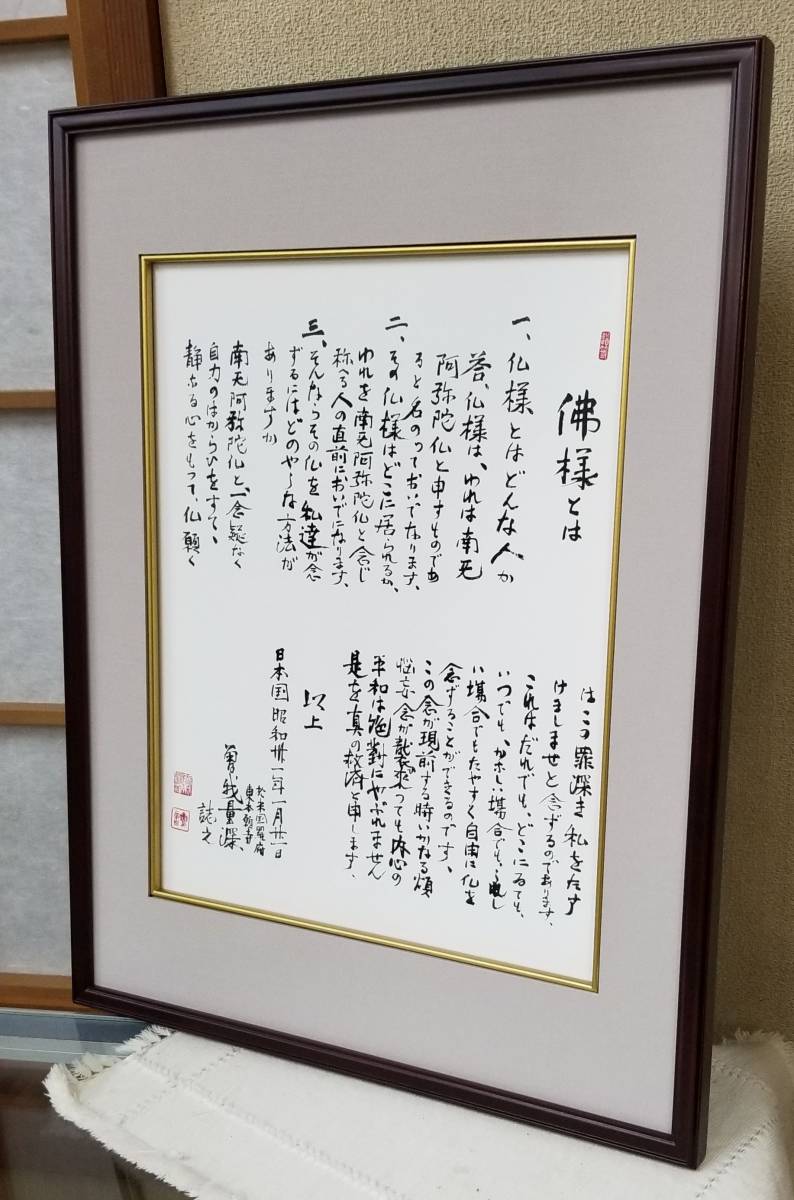 佛様とは
一、仏様とはどんな人か
答、仏様は、われは南无
阿弥陀仏と申すものであ
ると名のっておいでなります、
二、その仏様はどこに居られるか、
われを南无阿弥陀仏と念じ
称へる人の直前においでになります、
三、そんならその仏を私達が念
ずるにはどのやうな方法が
ありますか
南无阿弥陀仏と、一念疑なく
自力のはからひをすて、
静かなる心をもって、仏願く
はこの罪深き私をたす
けましませと念ずるのであります、
これはだれでも、どこにゐても、
いつでも、かなしい場合でも、うれし
い場合でもたやすく自由に仏を
念ずることができるのです、
この念が現前する時いかなる煩
悩妄念が襲来つても内心の
平和は絶對にやぶれません
是を真の救済と申します、
以上
日本国昭和卅一年一月廿一日
於米国羅府
東本願寺
曽我量深、
誌之